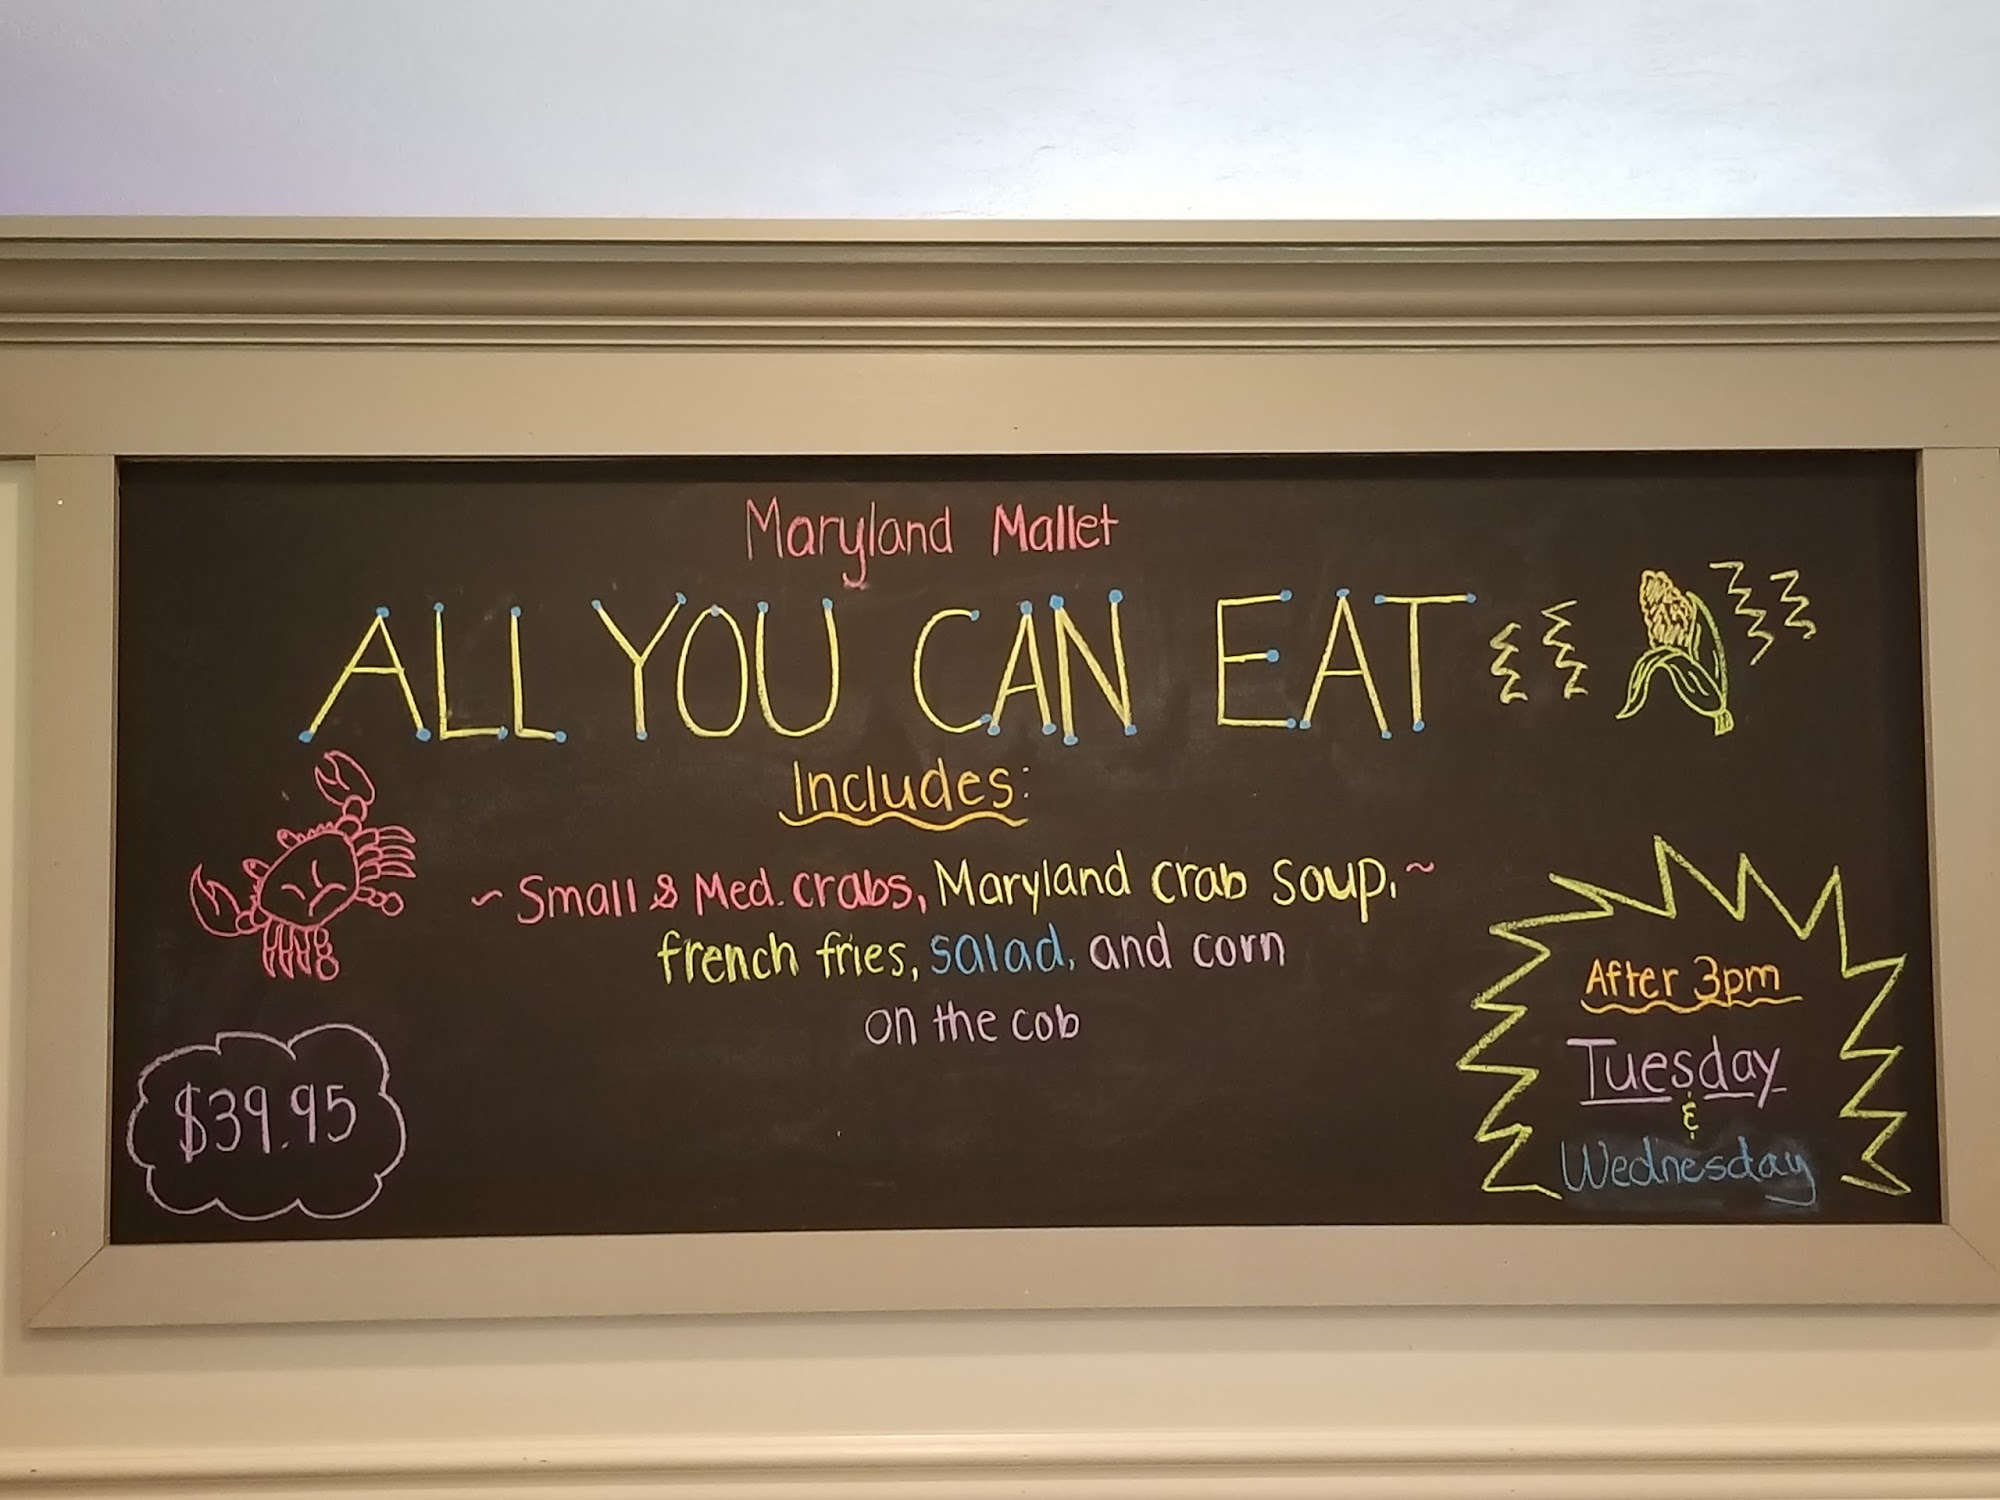 Maryland Mallet
ALL YOU CAN EAT
Includes:
~ Small & Med. crabs, Maryland crab soup, ~
french fries, salad, and corn
on the cob
$39.95
After 3pm
Tuesday
&
Wednesday